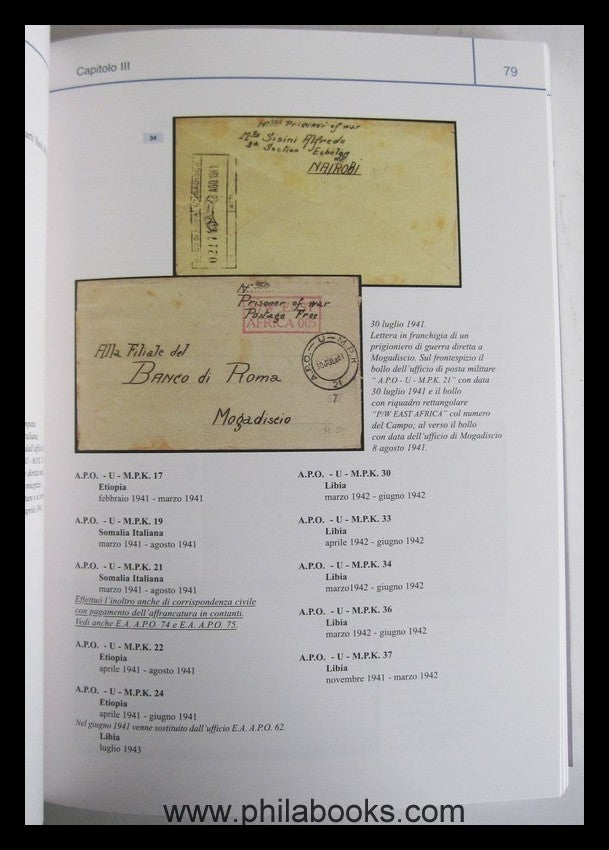 Capitolo III
79
34
Prisoner of war
Sisini Alfredo
Section Echelon
NAIROBI
Prisoner of war
Postage Free
AFRICA 005
A.P.O. - U - M.P.K.
21
Alla Filiale del
BANCO di ROMA
Mogadiscio
30 luglio 1941.
Lettera in franchigia di un
prigioniero di guerra diretta a
Mogadiscio. Sul frontespizio il
bollo dell'ufficio di posta militare
“ A.P.O - U - M.P.K. 21” con data
30 luglio 1941 e il bollo
con riquadro rettangolare
“P/W EAST AFRICA” col numero
del Campo; al verso il bollo
con data dell'ufficio di Mogadiscio
8 agosto 1941.
A.P.O. - U - M.P.K. 17
Etiopia
febbraio 1941 - marzo 1941
A.P.O. - U - M.P.K. 19
Somalia Italiana
marzo 1941 - agosto 1941
A.P.O. - U - M.P.K. 21
Somalia Italiana
marzo 1941 - agosto 1941
Effettuò l'inoltro anche di corrispondenza civile
con pagamento dell'affrancatura in contanti.
Vedi anche E.A. A.P.O. 74 e E.A. A.P.O. 75.
A.P.O. - U - M.P.K. 22
Etiopia
aprile 1941 - agosto 1941
A.P.O. - U - M.P.K. 24
Etiopia
aprile 1941 - giugno 1941
Nel giugno 1941 venne sostituito dall'ufficio E.A. A.P.O. 62.
Libia
luglio 1943
A.P.O. - U - M.P.K. 30
Libia
marzo 1942 - giugno 1942
A.P.O. - U - M.P.K. 33
Libia
aprile 1942 - giugno 1942
A.P.O. - U - M.P.K. 34
Libia
marzo1942 - giugno 1942
A.P.O. - U - M.P.K. 36
Libia
marzo 1942 - giugno 1942
A.P.O. - U - M.P.K. 37
Libia
novembre 1941 - marzo 1942
www.philabooks.com